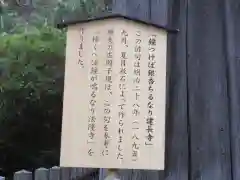 「鐘つけば銀杏ちるなり建長寺」
この俳句は明治二十八年（一八九五）
九月、夏目漱石によって作られました。
正岡子規は、この句を参考に
「柿くへば鐘が鳴るなり法隆寺」を
作りました。